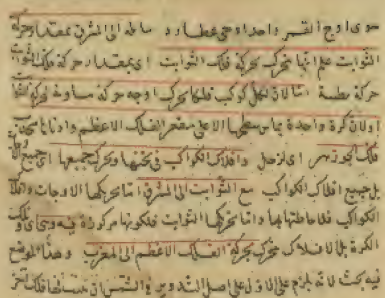 سوى اوج القمر واحد اوجى عطارد مائلة الى المشرق بمقدار حركة
الثوابت علم انها متحركة بحركة فلك الثوابت اى بمقدار حركة فلك الثوابت
حركة بطيئة اما لان لكل كوكب فلكا يحرك اوجه حركة مساوية لحركة
اولان كرة واحدة يماس سطحها الاعلى مقعر الفلك الاعظم وادناها محدب
فلك الجوزهر اى لزحل وافلاك الكواكب فى ثخنها وتحرك جميعها اى جميع
بل جميع افلاك الكواكب مع الثوابت الى المشرق اما تحريكها الاوجات وافلاك
الكواكب فلاحاطتها بها واما تحريكها الثوابت فلكونها مركوزة فيه
الكرة بل الافلاك تتحرك بحركة الفلك الاعظم الى المغرب وهذا الموضع
فيه بحث لانه يلزم على الاول على اصل التدوير فى الشمس ان